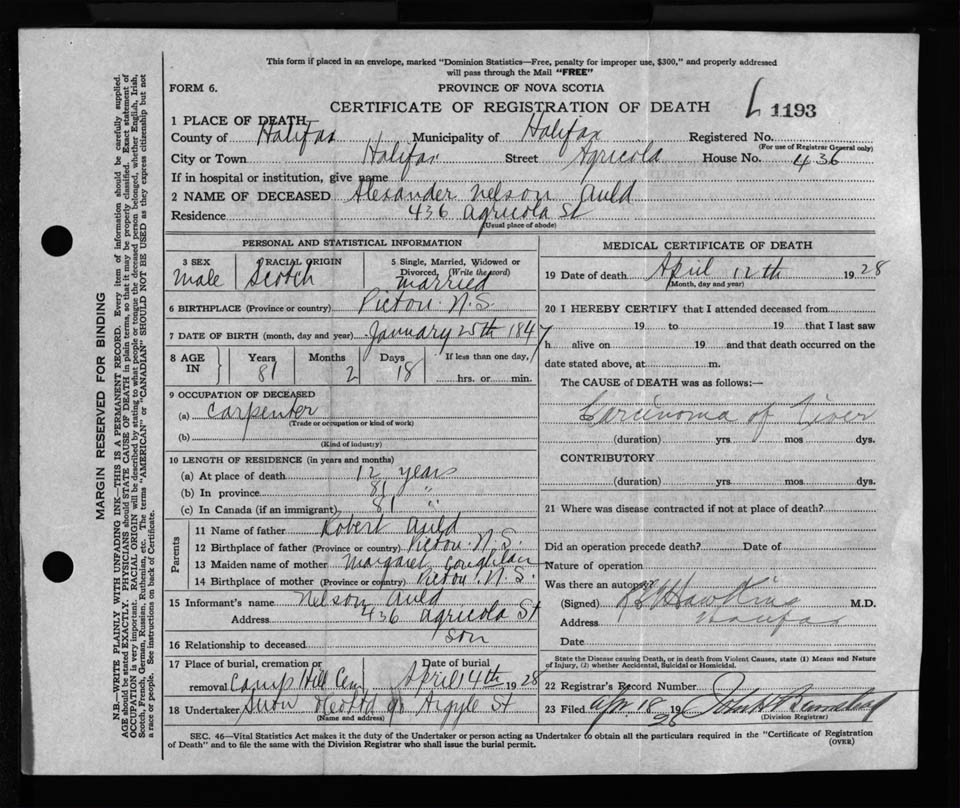 This form if placed in an envelope, marked "Dominion Statistics—Free, penalty for improper use, $300," and properly addressed
will pass through the Mail "FREE"
FORM 6.
PROVINCE OF NOVA SCOTIA
CERTIFICATE OF REGISTRATION OF DEATH
1193
1 PLACE OF DEATH,
County of Halifax Municipality of Halifax Registered No.
(For use of Registrar General only)
City or Town Halifax Street Agricola House No. 436
If in hospital or institution, give name
2 NAME OF DECEASED Alexander Nelson Auld
Residence 436 Agricola St
(Usual place of abode)
PERSONAL AND STATISTICAL INFORMATION
3 SEX RACIAL ORIGIN 5 Single, Married, Widowed or
Divorced, (Write the word)
Male Scotch Married
6 BIRTHPLACE (Province or country) Pictou N.S.
7 DATE OF BIRTH (month, day and year) January 25th 1847
8 AGE IN Years Months Days If less than one day,
81 2 18 hrs. or min.
9 OCCUPATION OF DECEASED
(a) Carpenter
(Trade or occupation or kind of work)
(b)
(Kind of industry)
10 LENGTH OF RESIDENCE (in years and months)
(a) At place of death 12 years
(b) In province 81 "
(c) In Canada (if an immigrant) 81 "
Parents
11 Name of father Robert Auld
12 Birthplace of father (Province or country) Pictou N.S.
13 Maiden name of mother Margaret Coughlan
14 Birthplace of mother (Province or country) Pictou N.S.
15 Informant's name Nelson Auld
Address 436 Agricola St
16 Relationship to deceased son
17 Place of burial, cremation or Date of burial
removal Camp Hill Cem April 14th 1928
18 Undertaker Snow Co Ltd 90 Argyle St
(Name and address)
MEDICAL CERTIFICATE OF DEATH
19 Date of death April 12th 1928
(Month, day and year)
20 I HEREBY CERTIFY that I attended deceased from
19 to 19 that I last saw
h alive on 19 and that death occurred on the
date stated above, at m.
The CAUSE of DEATH was as follows:—
Carcinoma of Liver
(duration) yrs. mos dys.
CONTRIBUTORY
(duration) yrs. mos. dys.
21 Where was disease contracted if not at place of death?
Did an operation precede death? Date of
Nature of operation
Was there an autopsy?
(Signed) Hawkins M.D.
Address Halifax
Date
State the Disease causing Death, or in death from Violent Causes, state (1) Means and Nature
of Injury, (2) whether Accidental, Suicidal or Homicidal.
22 Registrar's Record Number
23 Filed Apr 18 1928 John
(Division Registrar)
SEC. 46—Vital Statistics Act makes it the duty of the Undertaker or person acting as Undertaker to obtain all the particulars required in the "Certificate of Registration
of Death" and to file the same with the Division Registrar who shall issue the burial permit.
(OVER)
MARGIN RESERVED FOR BINDING
N.B.—WRITE PLAINLY WITH UNFADING INK—THIS IS A PERMANENT RECORD. Every item of information should be carefully supplied.
AGE should be stated EXACTLY. PHYSICIANS should STATE CAUSE OF DEATH in plain terms, so that it may be properly classified. Exact statement of
OCCUPATION is very important. RACIAL ORIGIN will be described by stating to what people or tongue the deceased person belonged, whether English, Irish,
Scotch, French, German, Russian, Ruthenian, etc. The terms "AMERICAN" or "CANADIAN" SHOULD NOT BE USED as they express citizenship but not
a race or people. See instructions on back of Certificate.